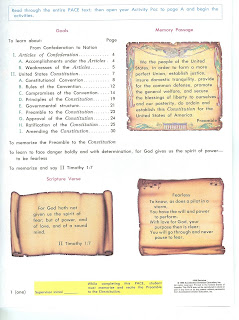 Read through the entire PACE text, then open your Activity Pac to page A and begin the
activities.
Goals
To learn about: Page
From Confederation to Nation
I. Articles of Confederation 4
A. Accomplishments under the Articles 4
B. Weaknesses of the Articles 5
II. United States Constitution 7
A. Constitutional Convention 8
B. Rules of the Convention 12
C. Compromises of the Convention 14
D. Principles of the Constitution 19
E. Governmental structure
F. Preamble to the Constitution 23
G. Approval of the Constitution 24
H. Ratification of the Constitution 25
I. Amending the Constitution 30
To memorize the Preamble to the Constitution
To learn to face danger boldly and with determination, for God gives us the spirit of power...
to be fearless
To memorize and say II Timothy 1:7
Memory Passage
We the people of the United
States, in order to form a more
perfect Union, establish justice,
insure domestic tranquility, provide
for the common defense, promote
the general welfare, and secure
the blessings of liberty to ourselves
and our posterity, do ordain and
establish this Constitution for the
United States of America.
Preamble
Scripture Verse
For God hath not
given us the spirit of
fear; but of power, and
of love, and of a sound
mind.
II Timothy 1:7
Fearless
To know, or dare a plan in a
storm,
You have the will and power
to perform.
With love for God, your
purpose then is clear:
The will go through and never
pause to fear.
1 (one)
Supervisor initial
While completing this PACE, student
must memorize and recite the Preamble
to the Constitution.